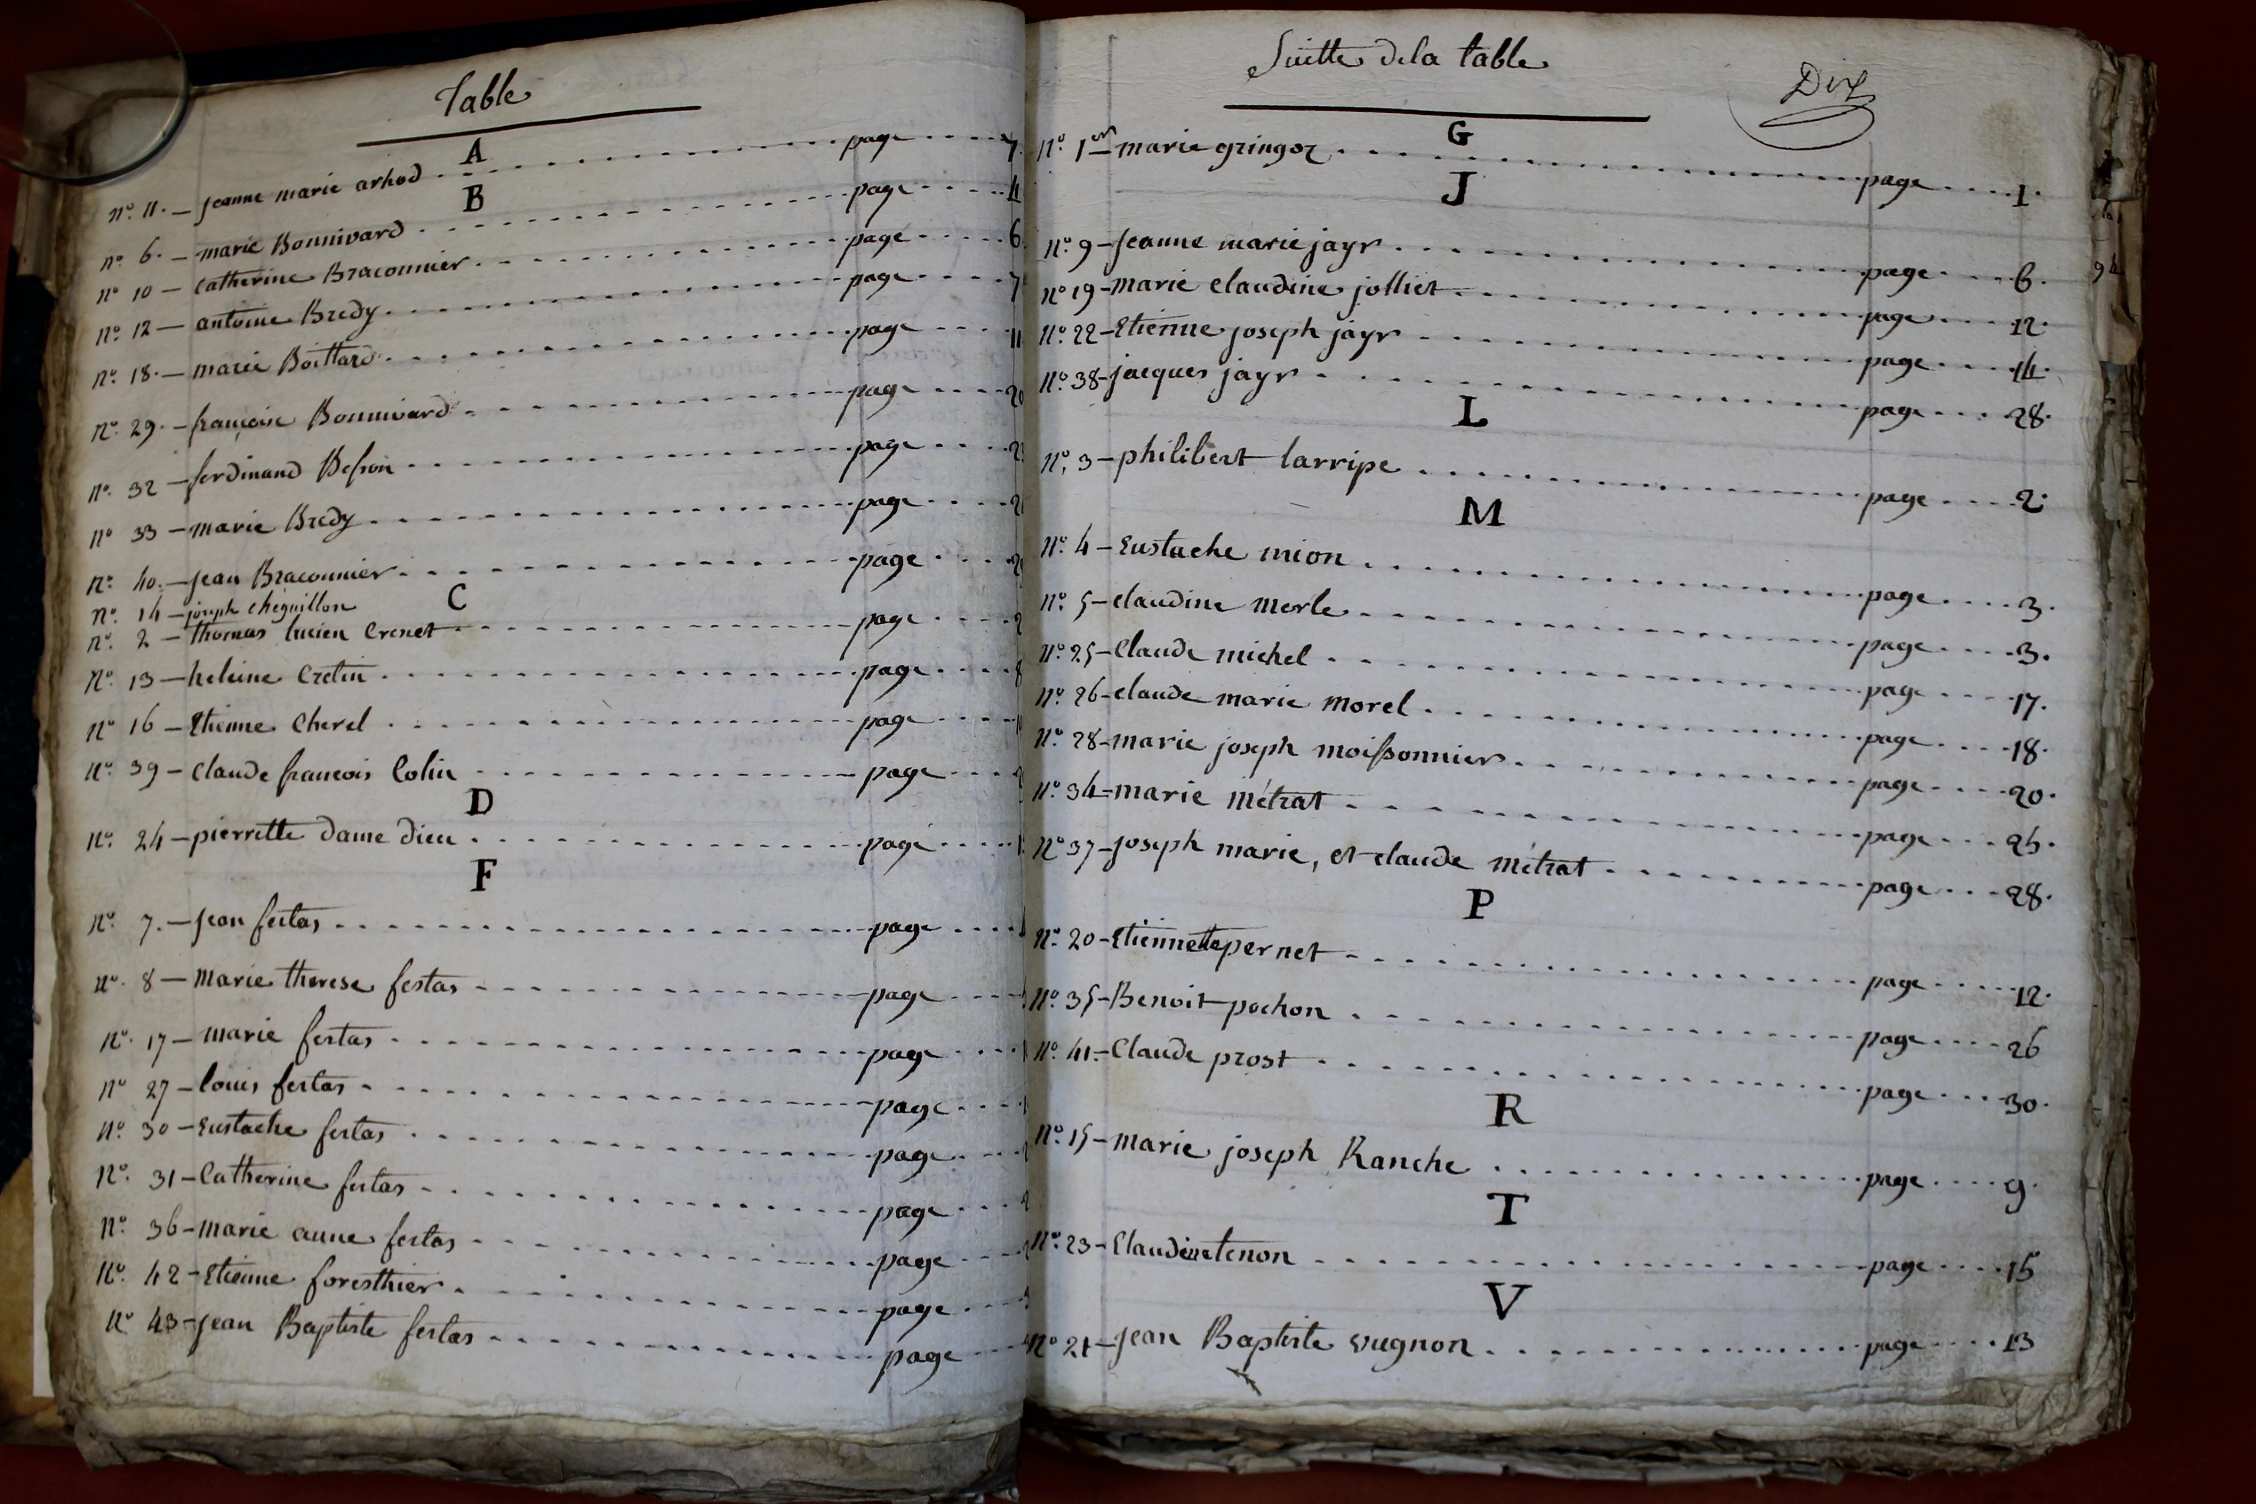 Table
A
n.º 11. — jeanne marie arhod page 7.
B
n.º 6. — marie Bonnivard page 4
n.º 10 — catherine Braconnier page 6.
n.º 12 — antoine Bredy page 7
n.º 18. — marie Boittard page 11
n.º 29. — françoise Bonnivard page 20
n.º 32 — ferdinand Besson page
n.º 33 — marie Bredy page
n.º 40. — jean Braconnier page
C
n.º 14 — joseph cheguillon
n.º 2 — thomas lucien Crenet page 2
n.º 13 — heleine Cretin page 8
n.º 16 — Etienne Cherel page
n.º 39 — claude francois Colin page
D
n.º 24 — pierrette dame dieu page
F
n.º 7. — jean festas page
n.º 8 — marie therese festas page
n.º 17 — marie festas page
n.º 27 — louis festas page
n.º 30 — Eustache festas page
n.º 31 — Catherine festas page
n.º 36 — marie anne festas page
n.º 42 — Etienne foresthier page
n.º 43 — jean Baptiste festas page
Suitte de la table
Dix
G
n.º 1er — marie gringoz page 1.
J
n.º 9 — jeanne marie jayr page 6.
n.º 19 — marie claudine jolliet page 12.
n.º 22 — Etienne joseph jayr page 14.
n.º 38 — jacques jayr page 28.
L
n.º 3 — philibert larripe page 2.
M
n.º 4 — Eustache mion page 3.
n.º 5 — claudine merle page 3.
n.º 25 — Claude michel page 17.
n.º 26 — claude marie morel page 18.
n.º 28 — marie joseph moissonnier page 20.
n.º 34 — marie métrat page 25.
n.º 37 — joseph marie, et claude métrat page 28.
P
n.º 20 — Etiennette pernet page 12.
n.º 35 — Benoit pochon page 26
n.º 41. — Claude prost page 30.
R
n.º 15 — marie joseph Ranche page 9.
T
n.º 23 — Claudine tenon page 15
V
n.º 21 — jean Baptiste vugnon page 13